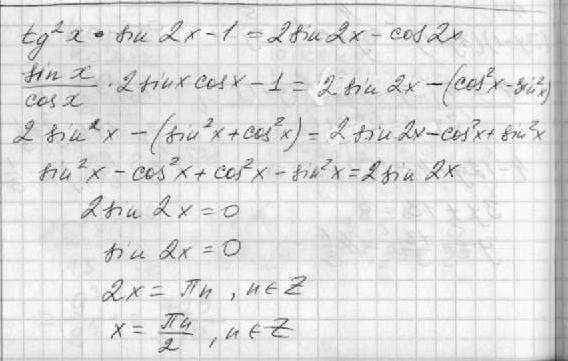 tg²x • sin 2x - 1 = 2 sin 2x - cos 2x
sin x / cos x · 2 sin x cos x - 1 = 2 sin 2x - (cos²x - sin²x)
2 sin²x - (sin²x + cos²x) = 2 sin 2x - cos²x + sin²x
sin²x - cos²x + cos²x - sin²x = 2 sin 2x
2 sin 2x = 0
sin 2x = 0
2x = πn, n ∈ Z
x = πn / 2, n ∈ Z